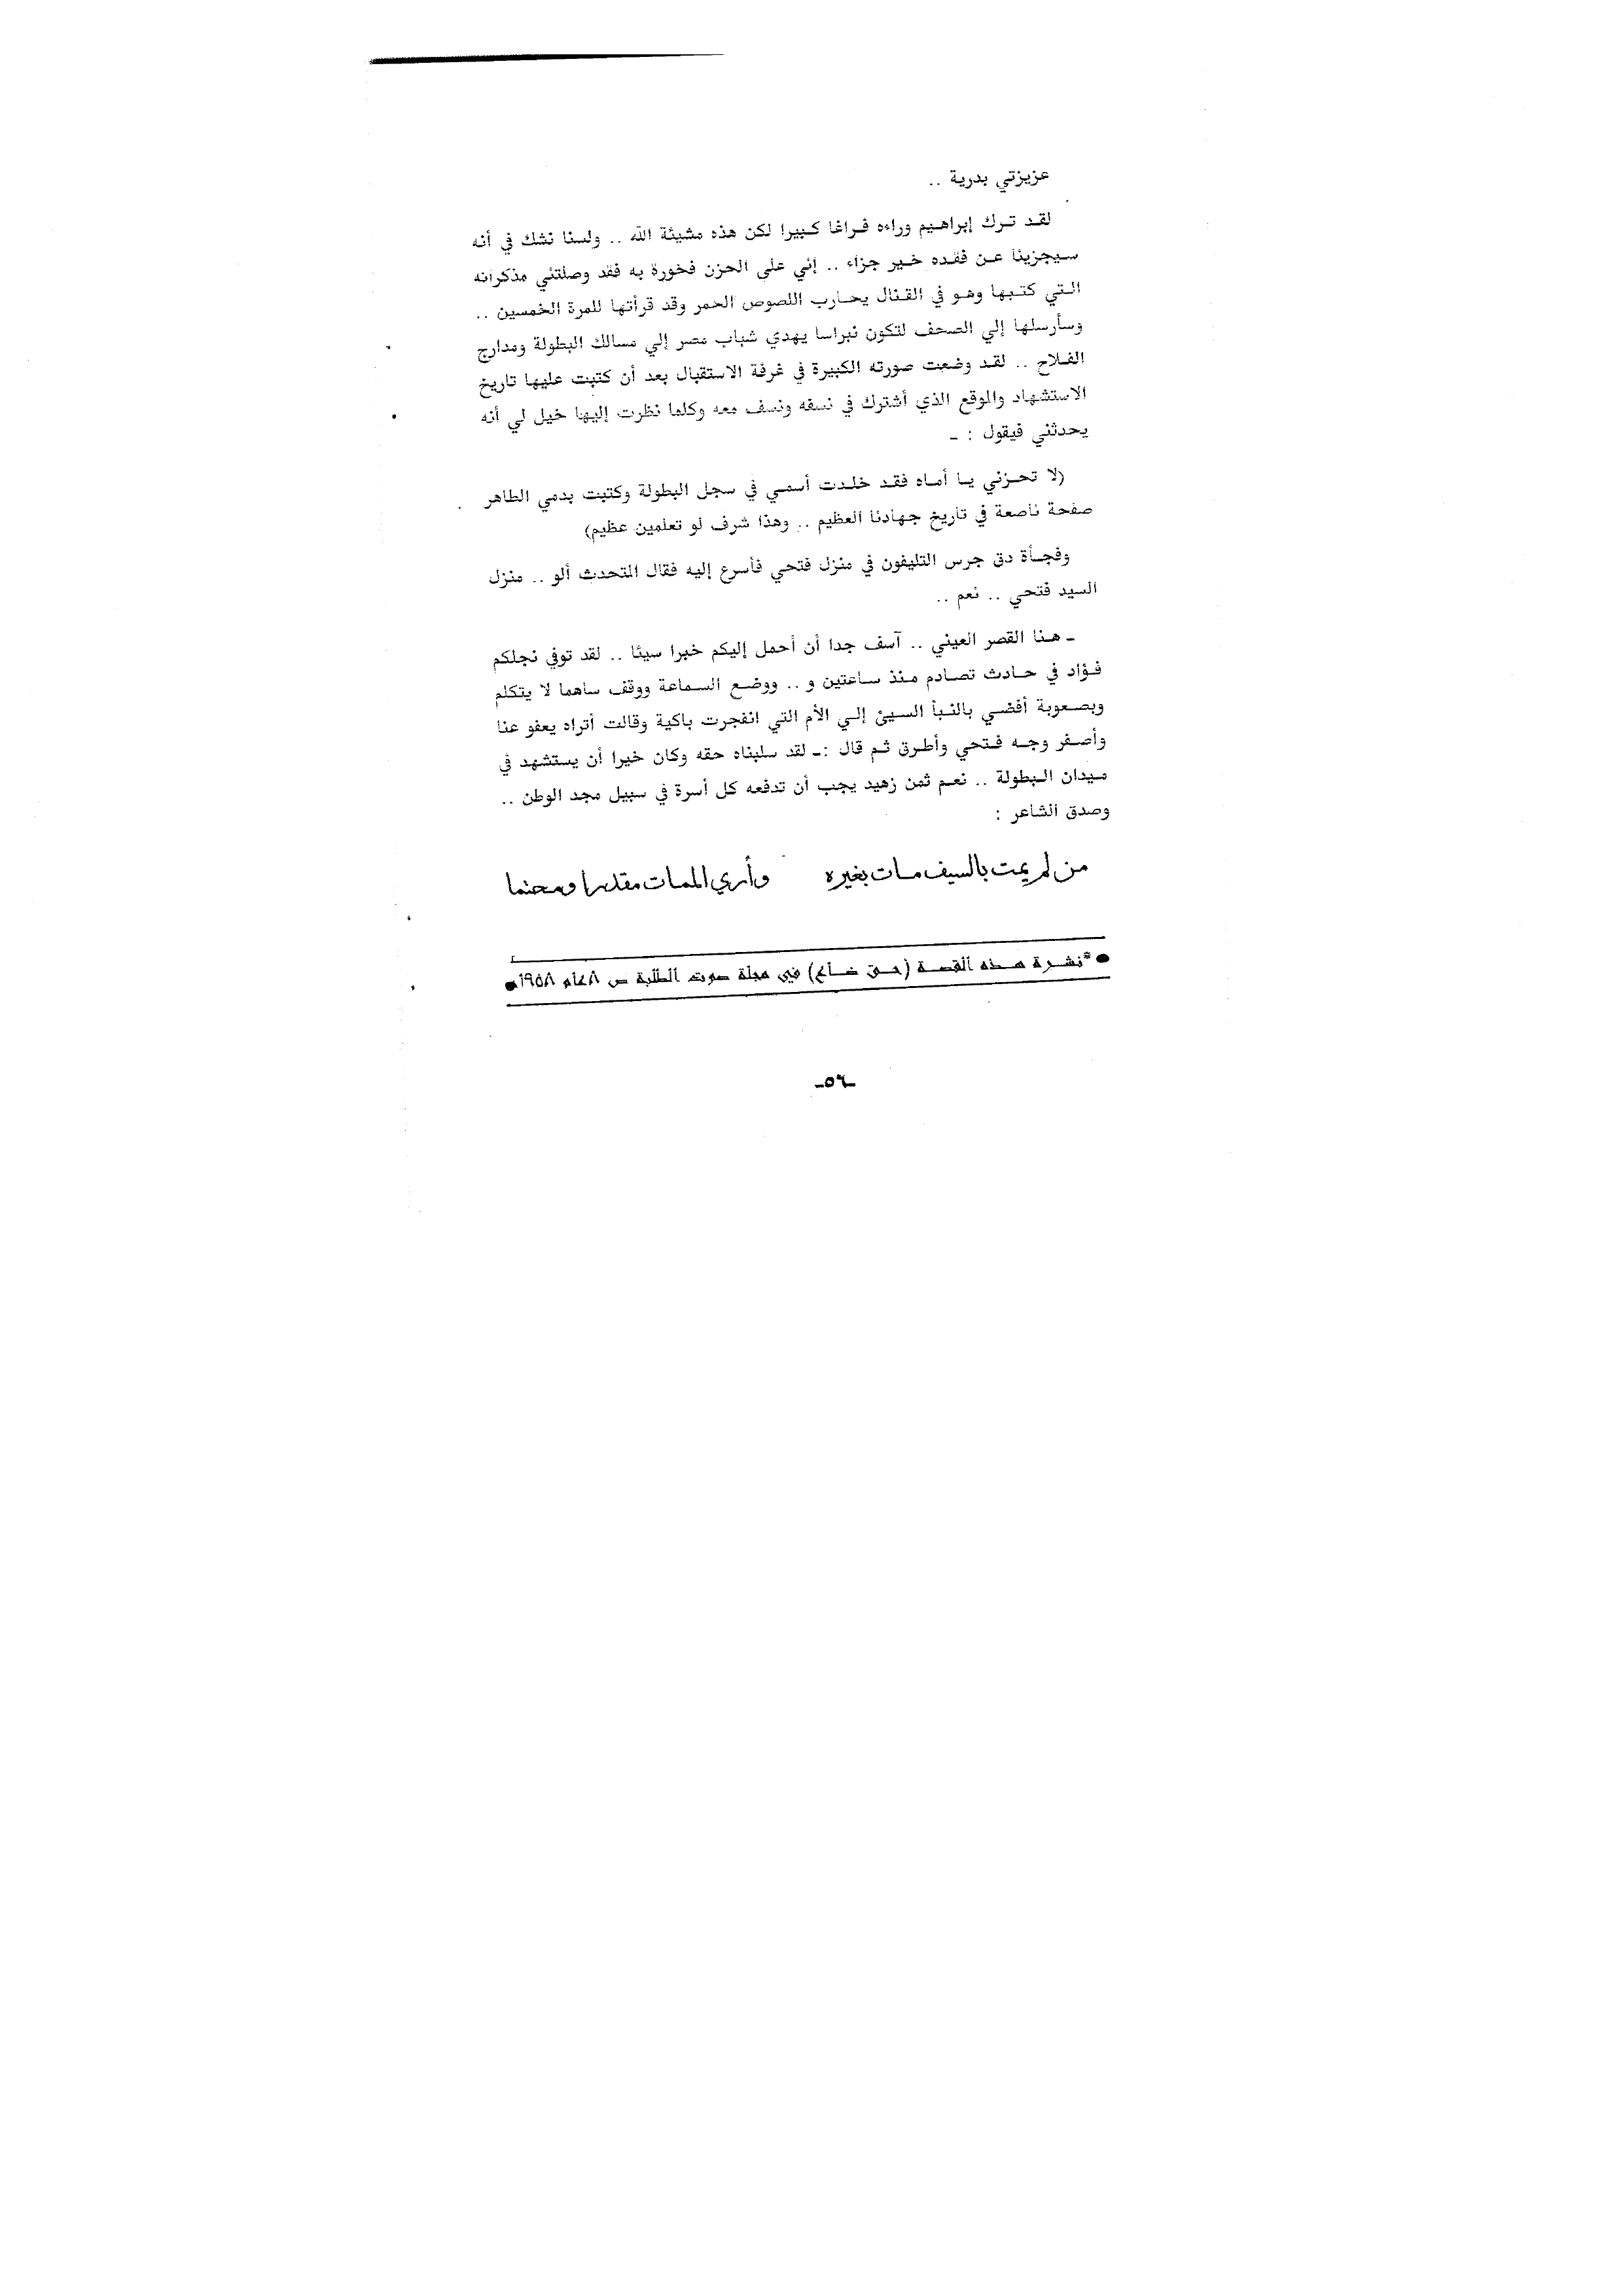 عزيزتي بدرية ..
لقد ترك إبراهيم وراءه فراغا كبيرا لكن هذه مشيئة الله .. ولسنا نشك في أنه
سيجزينا عن فقده خير جزاء .. إني على الحزن فخورة به فقد وصلتني مذكراته
التي كتبها وهو في القنال يحارب اللصوص الحمر وقد قرأتها للمرة الخمسين ..
وسأرسلها إلي الصحف لتكون نبراسا يهدي شباب مصر إلي مسالك البطولة ومدارج
الفلاح .. لقد وضعت صورته الكبيرة في غرفة الاستقبال بعد أن كتبت عليها تاريخ
الاستشهاد والموقع الذي أشترك في نسفه ونسف معه وكلما نظرت إليها خيل لي أنه
يحدثني فيقول : -
(لا تحزني يا أماه فقد خلدت أسمي في سجل البطولة وكتبت بدمي الطاهر
صفحة ناصعة في تاريخ جهادنا العظيم .. وهذا شرف لو تعلمين عظيم)
وفجأة دق جرس التليفون في منزل فتحي فأسرع إليه فقال المتحدث ألو .. منزل
السيد فتحي .. نعم ..
- هنا القصر العيني .. آسف جدا أن أحمل إليكم خبرا سيئا .. لقد توفي نجلكم
فؤاد في حادث تصادم منذ ساعتين و .. ووضع السماعة ووقف ساهما لا يتكلم
وبصعوبة أفضي بالنبأ السيئ إلي الأم التي انفجرت باكية وقالت أتراه يعفو عنا
وأصفر وجه فتحي وأطرق ثم قال :- لقد سلبناه حقه وكان خيرا أن يستشهد في
ميدان البطولة .. نعم ثمن زهيد يجب أن تدفعه كل أسرة في سبيل مجد الوطن ..
وصدق الشاعر :
من لم يمت بالسيف مات بغيره وأري الممات مقدرا ومحتما
● * نشرة هذه القصة (حق ضائع) في مجلة صوت الطلبة ص ٤٨ عام ١٩٥٨م ●
-٥٦-